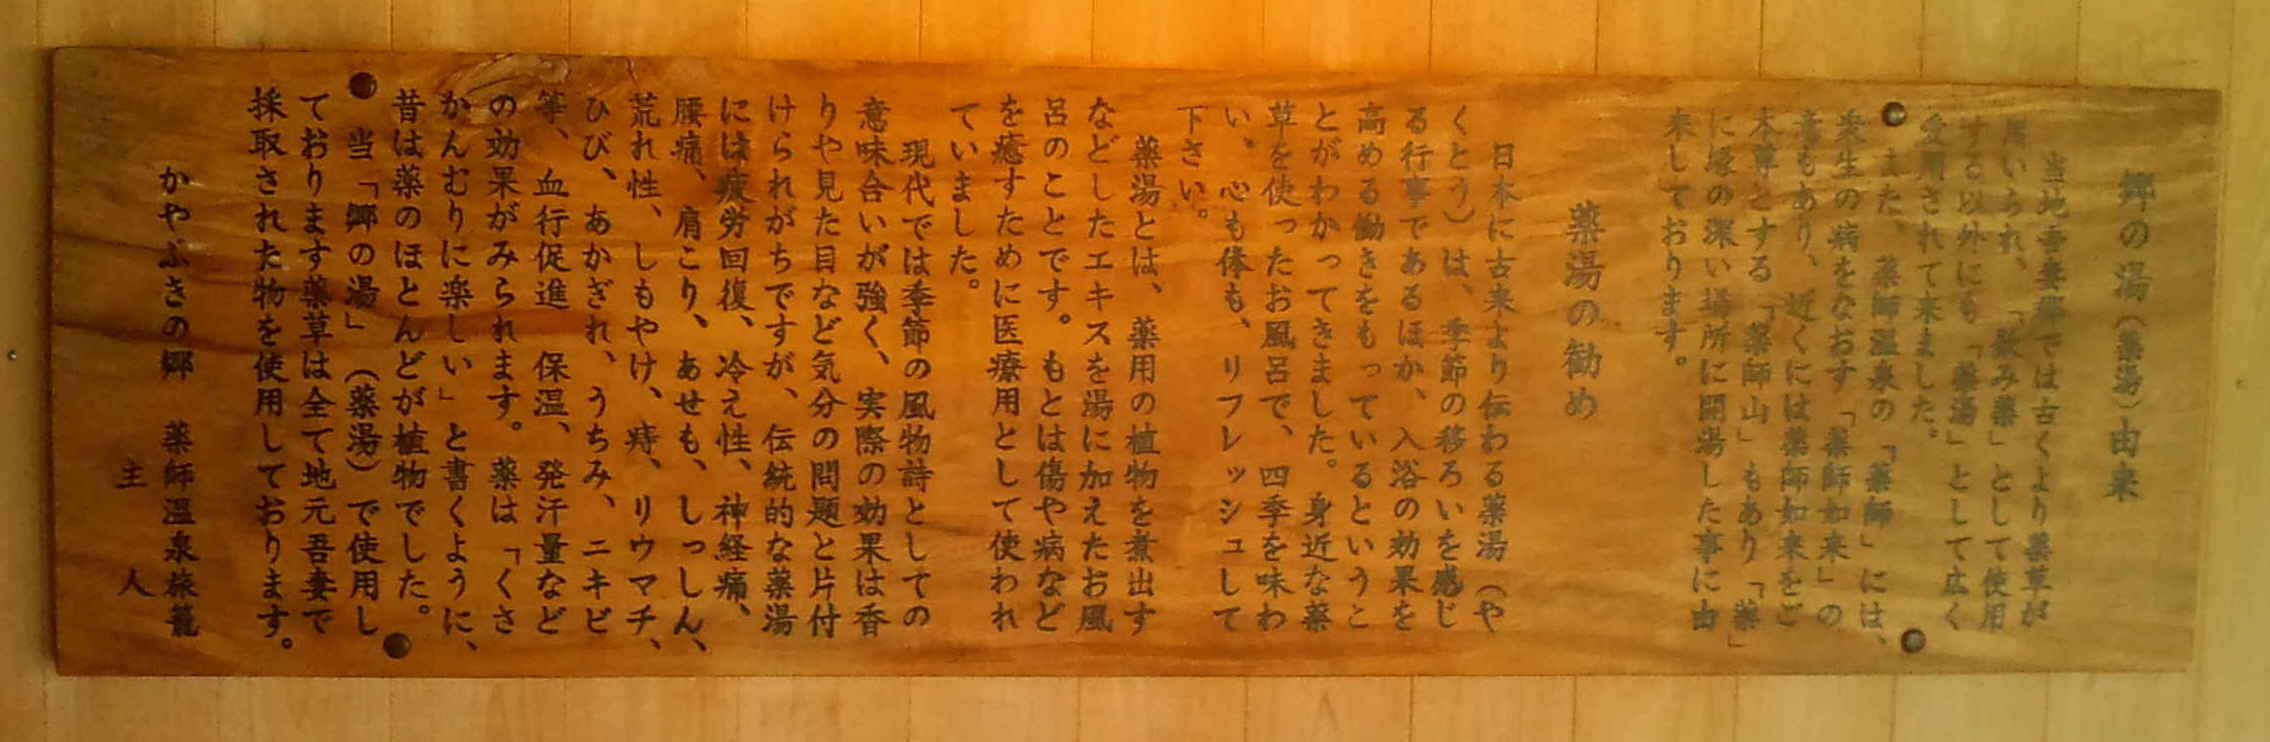 郷の湯（薬湯）由来
当地吾妻郷では古くより薬草が
用いられ、「飲み薬」として使用
する以外にも「薬湯」として広く
愛用されて来ました。
また、薬師温泉の「薬師」には、
衆生の病をなおす「薬師如来」の
意もあり、近くには薬師如来をご
本尊とする「薬師山」もあり「薬」
に縁の深い場所に開湯した事に由
来しております。
薬湯の勧め
日本に古来より伝わる薬湯（や
くとう）は、季節の移ろいを感じ
る行事であるほか、入浴の効果を
高める働きをもっているというこ
とがわかってきました。身近な薬
草を使ったお風呂で、四季を味わ
い、心も体も、リフレッシュして
下さい。
薬湯とは、薬用の植物を煮出す
などしたエキスを湯に加えたお風
呂のことです。もとは傷や病など
を癒すために医療用として使われ
ていました。
現代では季節の風物詩としての
意味合いが強く、実際の効果は香
りや見た目など気分の問題と片付
けられがちですが、伝統的な薬湯
には疲労回復、冷え性、神経痛、
腰痛、肩こり、あせも、しっしん、
荒れ性、しもやけ、痔、リウマチ、
ひび、あかぎれ、うちみ、ニキビ
等、血行促進　保温、発汗量など
の効果がみられます。薬は「くさ
かんむりに楽しい」と書くように、
昔は薬のほとんどが植物でした。
当「郷の湯」（薬湯）で使用し
ております薬草は全て地元吾妻で
採取された物を使用しております。
かやぶきの郷　薬師温泉旅籠
主　人